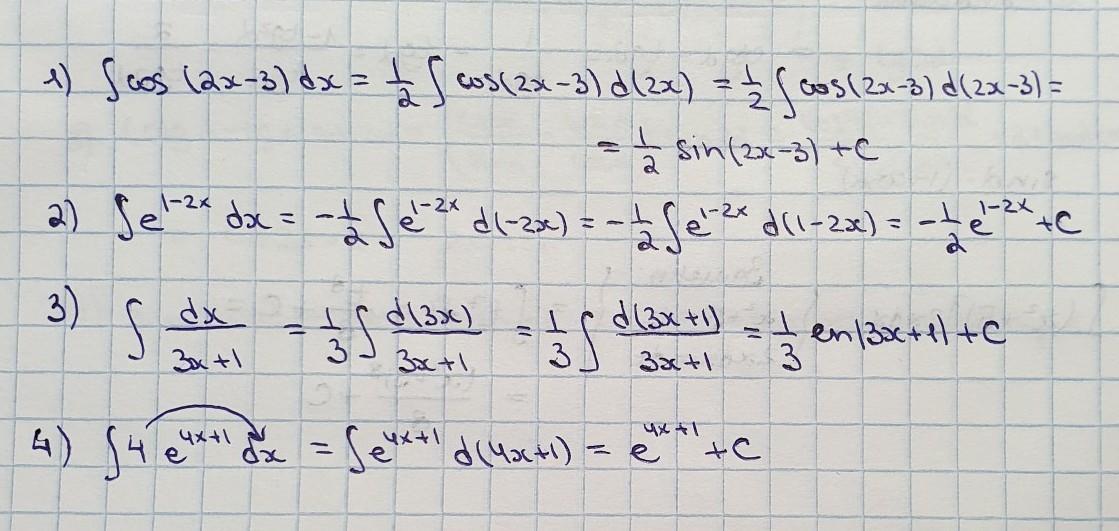 1) ∫ cos (2x-3) dx = 1/2 ∫ cos(2x-3) d(2x) = 1/2 ∫ cos(2x-3) d(2x-3) =
= 1/2 sin(2x-3) + C
2) ∫ e^(1-2x) dx = -1/2 ∫ e^(1-2x) d(-2x) = -1/2 ∫ e^(1-2x) d(1-2x) = -1/2 e^(1-2x) + C
3) ∫ dx/(3x+1) = 1/3 ∫ d(3x)/(3x+1) = 1/3 ∫ d(3x+1)/(3x+1) = 1/3 ln|3x+1| + C
4) ∫ 4 e^(4x+1) dx = ∫ e^(4x+1) d(4x+1) = e^(4x+1) + C